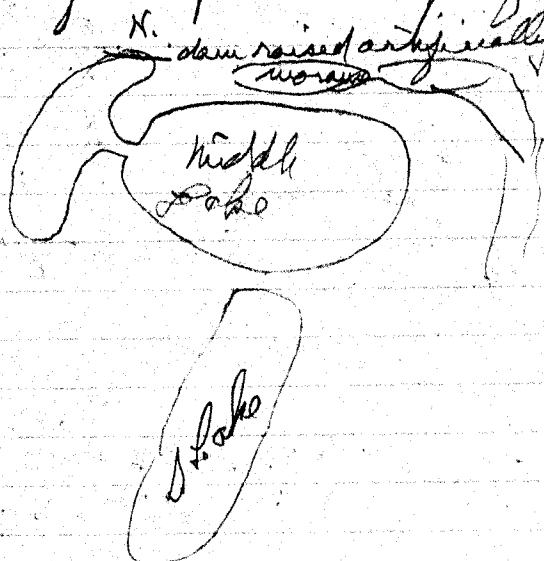 N.
dam raised artificially
moraine
Middle
Lake
S Lake